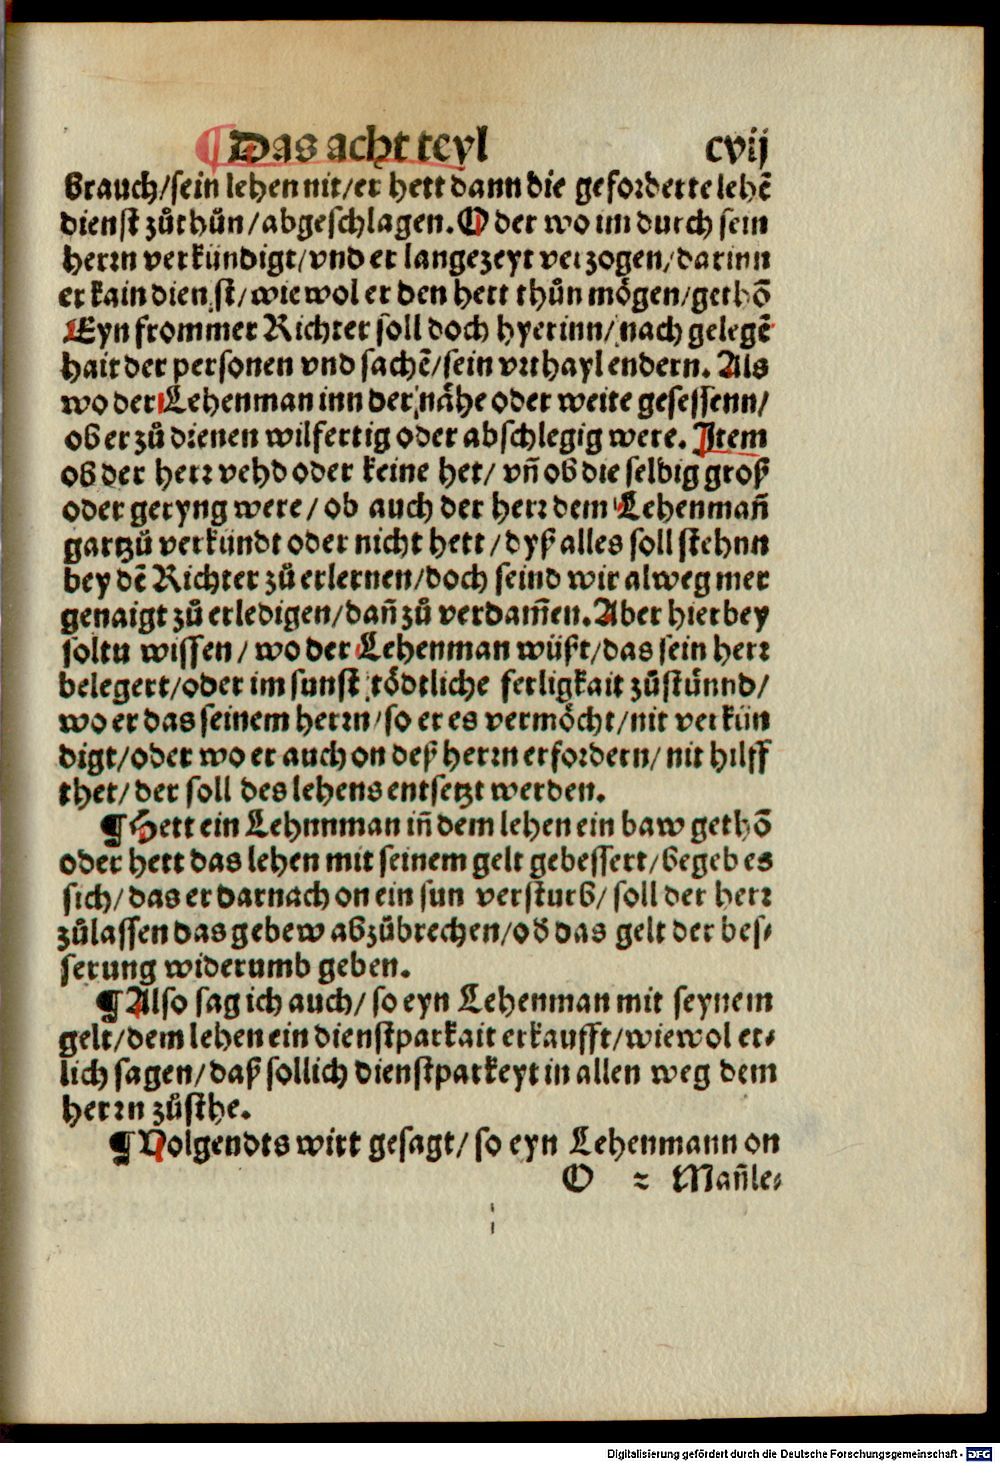 ¶Das acht teyl cvij
brauch/sein lehen nit/er hett dann die geforderte lehē
dienst zůthůn/abgeschlagen. Oder wo im durch sein
herrn verkündigt/vnd er langezeyt verzogen/darinn
er kain dienst/wiewol er den hett thůn mögen/gethō
Eyn frommer Richter soll doch hyerinn/nach gelegē
hait der personen vnd sachē/sein vrthayl endern. Als
wo der Lehenman inn der nähe oder weite gesessenn/
ob er zů dienen wilfertig oder abschlegig were. Item
ob der herr vehd oder keine het/ vn̄ ob die selbig groß
oder geryng were/ ob auch der herr dem Lehenman̄
gartzů verkündt oder nicht hett/dyß alles soll stehnn
bey dē Richter zů erlernen/doch seind wir alweg mer
genaigt zů erledigen/dan̄ zů verdam̄en. Aber hierbey
soltu wissen/ wo der Lehenman wüßt/das sein herr
belegert/oder im sunst tödtliche ferligkait zůstünnd/
wo er das seinem herrn/so er es vermöcht/nit verkün
digt/oder wo er auch on deß herrn erfordern/ nit hilff
thet/ der soll des lehens entsetzt werden.
¶Hett ein Lehnnman in̄ dem lehen ein baw gethō
oder hett das lehen mit seinem gelt gebessert/begeb es
sich/das er darnach on ein sun versturb/ soll der herr
zůlassen das gebew abzůbrechen/oď das gelt der bes⸗
serung widerumb geben.
¶Also sag ich auch/ so eyn Lehenman mit seynem
gelt/dem lehen ein dienstparkait erkaufft/wiewol et⸗
lich sagen/daß sollich dienstparkeyt in allen weg dem
herrn zůsthe.
¶Volgendts wirt gesagt/ so eyn Lehenmann on
O 2 Man̄le⸗
Digitalisierung gefördert durch die Deutsche Forschungsgemeinschaft - DFG